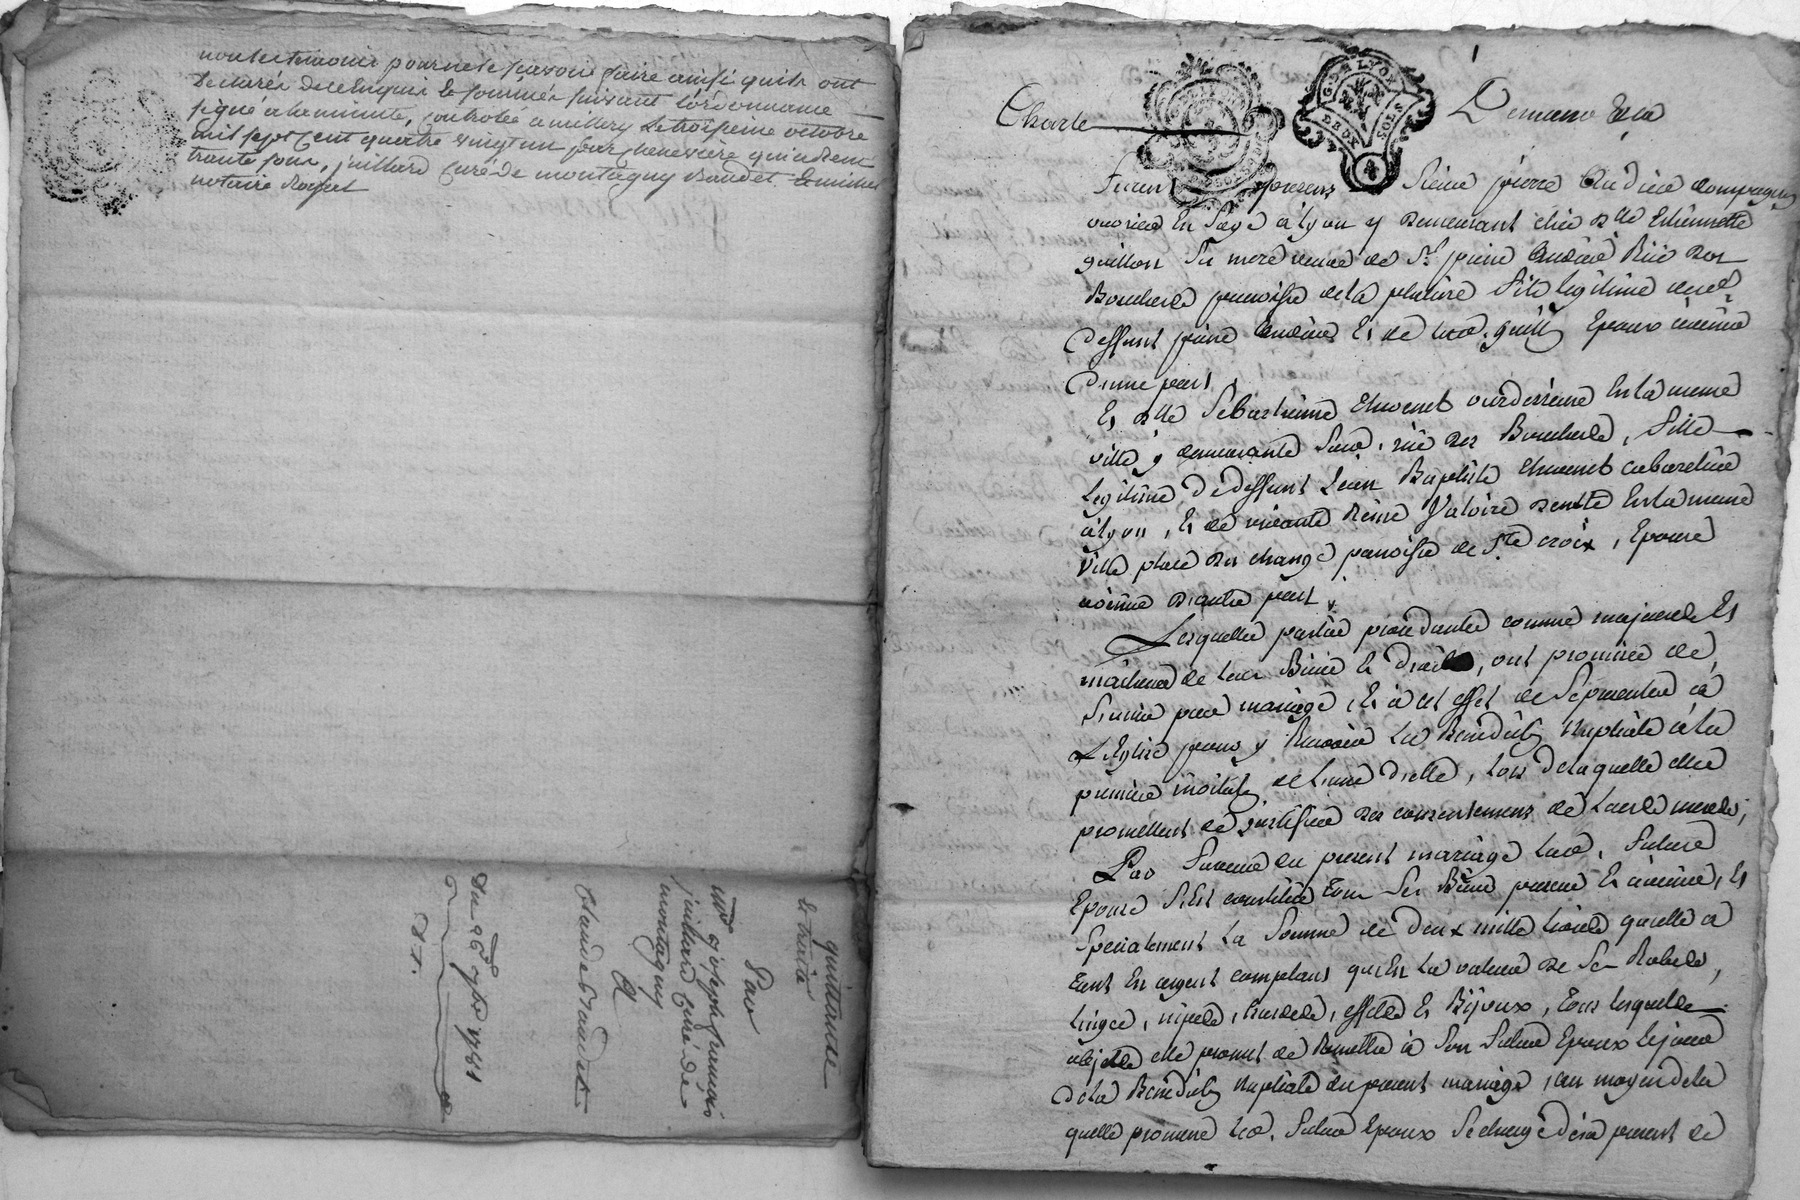 non les temoins pour ne le scavoir faire ainsi quils ont
declarés de ce enquis & sommés suivant l'ordonnance
signé a la minute, controlé a millery le troisieme octobre
mil sept cent quatre vingt un par chenevière qui a recu
trente sous, juillard curé de montagny Baudet
notaire Royal
quittance
Par
mre joseph francois
juillard curé de
montagny
A
Claude Baudet
Du 26e 7bre 1781
Charle
G. DE LYON
DEUX SOLS
4
Furent presens Sieur pierre Audiee compagnon
ouvrier En soye à lyon y demeurant chez dlle Etiennette
guillon sa mere veuve de Sr. pierre Rüe des
Boucherie parroisse de la platiere fils legitime dud.
deffunt pierre Et de Epoux avenir
d'une part,
Et dlle Sebastienne Thevenet ourdisseuse En la meme
ville y demeurante sud. rüe des Boucherie, fille
legitime de deffunt Jean Baptiste Thevenet cabaretier
à lyon, Et de vivante Reine Valoire rentte En la meme
Ville place du change parroisse de Ste croix, Epouse
avenir d'autre part,
Lesquelles parties procedantes comme majeures Et
maitresses de leurs Biens Et droits, ont promises de
s'unir par mariage, Et à cet effet de se presenter à
L'Eglise pour y Recevoir La Benediction Nuptiale à la
premiere invitation de L'une d'elle, lors de laquelle elles
promettent de justifier des consentemens de leurs meres;
Par faveur du present mariage lad. future
Epouse s'est constitué tous ses Biens present Et avenir, Et
specialement La somme de deux mille livres quelle a
tant En argent comptant qu'En la valeur de ses Robes,
linges, nipes, hardes, effets Et Bijoux, tous lesquels
objets elle promet de Remettre à son futur Epoux le jour
de la Benediction Nuptiale du present mariage, au moyen de la
quelle promesse led. futur Epoux se charge dès à present de